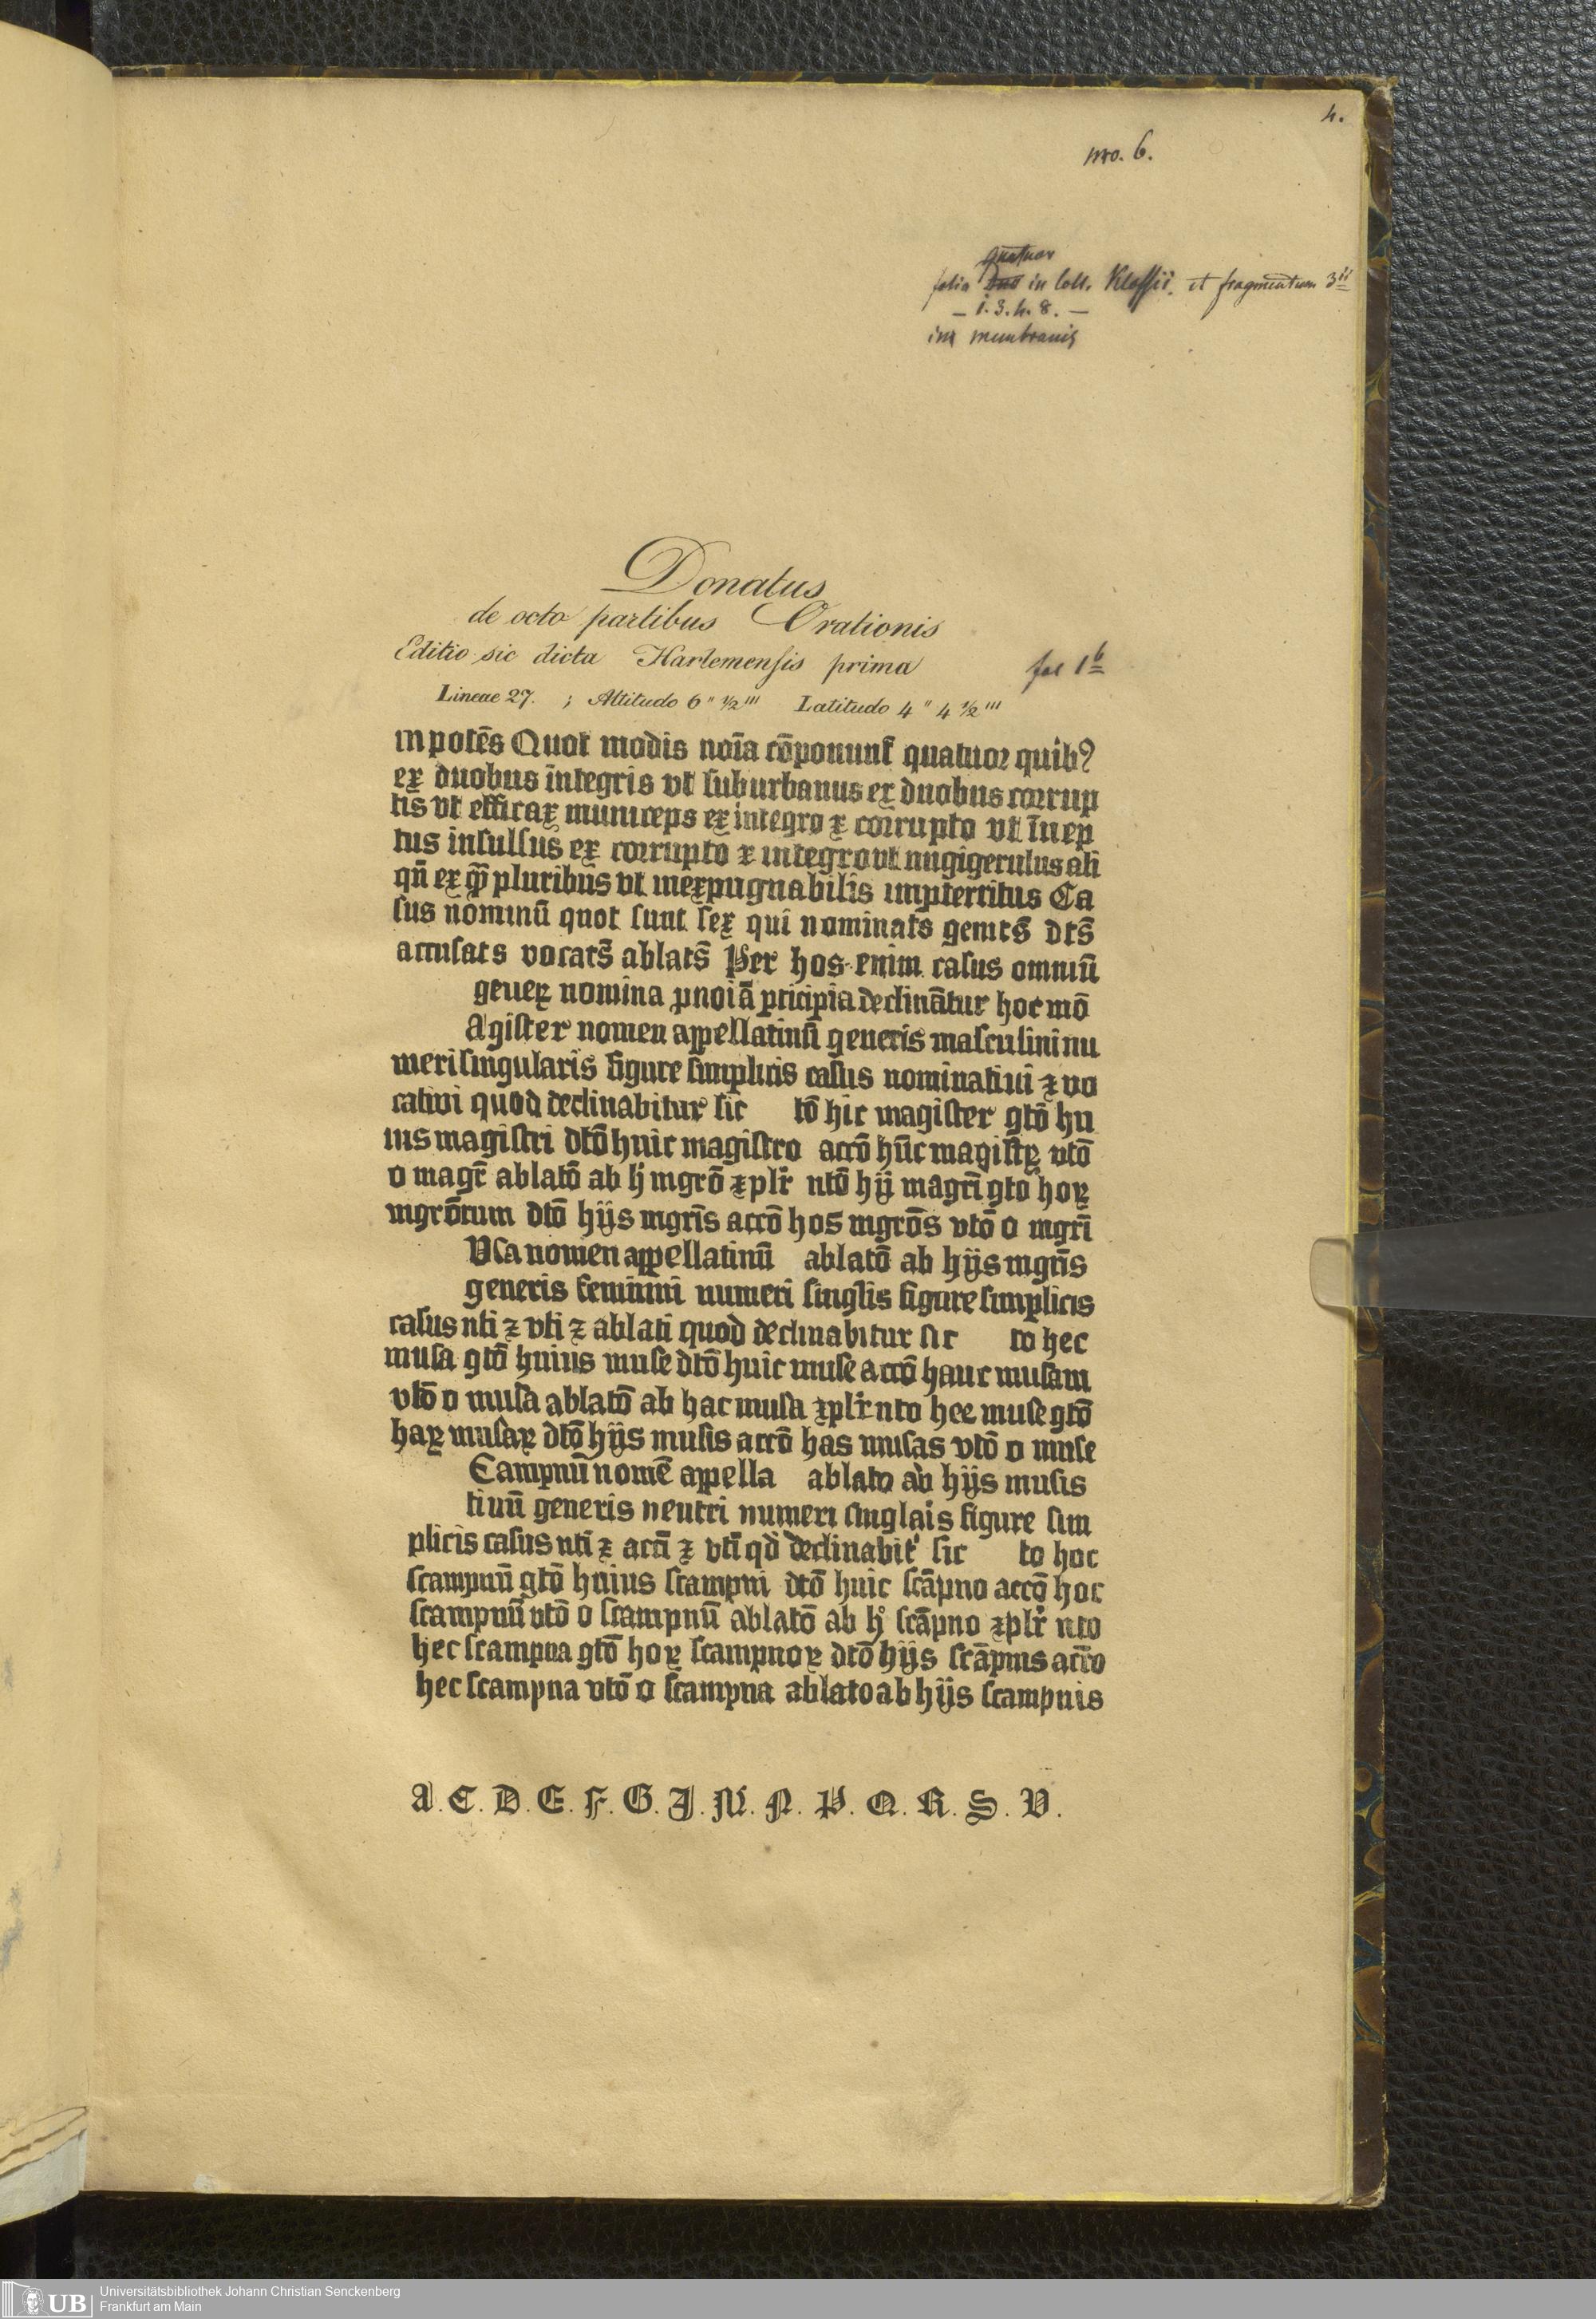 4.
nro. 6.
quatuor
folia Duo in Coll. Klossii. et fragmentum 3ii
– 1. 3. 4. 8. –
in membranis
Donatus
de octo partibus Orationis
Editio sic dicta Harlemensis prima
fol 1b
Lineae 27. ; Altitudo 6" ½''' Latitudo 4" 4 ½'''
inpotēs Quot modis noīa cōponunt̄ quatuor quib9
ex duobus integris vt suburbanus ex duobus corrup
tis vt efficax municeps ex integro ꝛ corrupto vt īnep
tus insulsus ex corrupto ꝛ integro vt nugigerulus ali
qn̄ ex ꝯpluribus vt inexpugnabilis impterritus Ca
sus nominū quot sunt sex qui nominats genits̄ dts̄
accusats vocats̄ ablats̄ Per hos enim casus omniū
generꝝ nomina pnoīa pticipia declināntur hoc mō
Agister nomen appellatiuū generis masculini nu
meri singularis figure simplicis casus nominatiui ꝛ vo
cativi quod declinabitur sic tō hic magister gtō hu
ius magistri dtō huic magistro accō hūc magistꝝ vtō
o magr̄ ablatō ab h̊ mgrō ꝛplr̄ ntō hij magr̄i gto hoꝝ
mgrōrum dtō hijs mgrīs accō hos mgrōs vtō o mgrī
Vsa nomen appellatiuū ablatō ab hijs mgrīs
generis feminini numeri singlis figure simplicis
casus nti ꝛ vti ꝛ ablati quod declinabitur sic to hec
musa gtō huius muse dtō huic muse accō hanc musam
vtō o musa ablatō ab hac musa ꝛplr̄ nto hee muse gtō
haꝝ musaꝝ dtō hijs musis accō has musas vtō o muse
Campnū nomē appella ablato ab hijs musis
tiuū generis neutri numeri singlais figure sim
plicis casus nti ꝛ acti ꝛ vtī qd̄ declinabit' sic to hoc
scampnū gtō huius scampni dtō huic scāpno accō hoc
scampnū vtō o scampnū ablatō ab h̊ scāpno ꝛplr̄ nto
hec scampna gtō hoꝝ scampnoꝝ dtō hijs scāpnis accō
hec scampna vtō o scampna ablato ab hijs scampnis
A. C. D. E. F. G. I. M. N. P. Q. R. S. V.
UB
Universitätsbibliothek Johann Christian Senckenberg
Frankfurt am Main